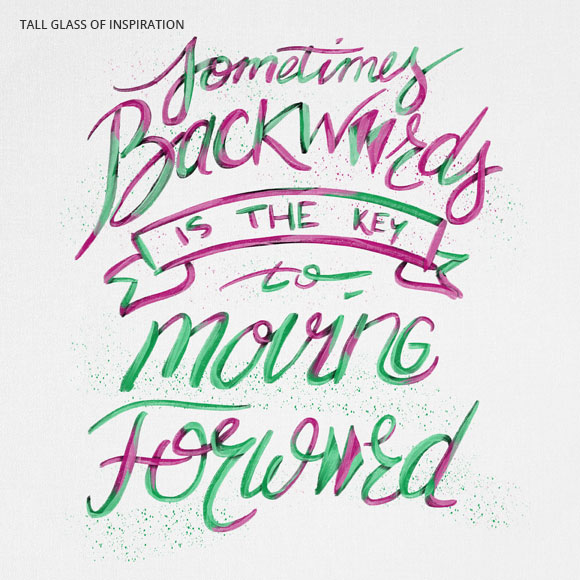 TALL GLASS OF INSPIRATION
Sometimes
Backwards
IS THE KEY
to
moving
Forward